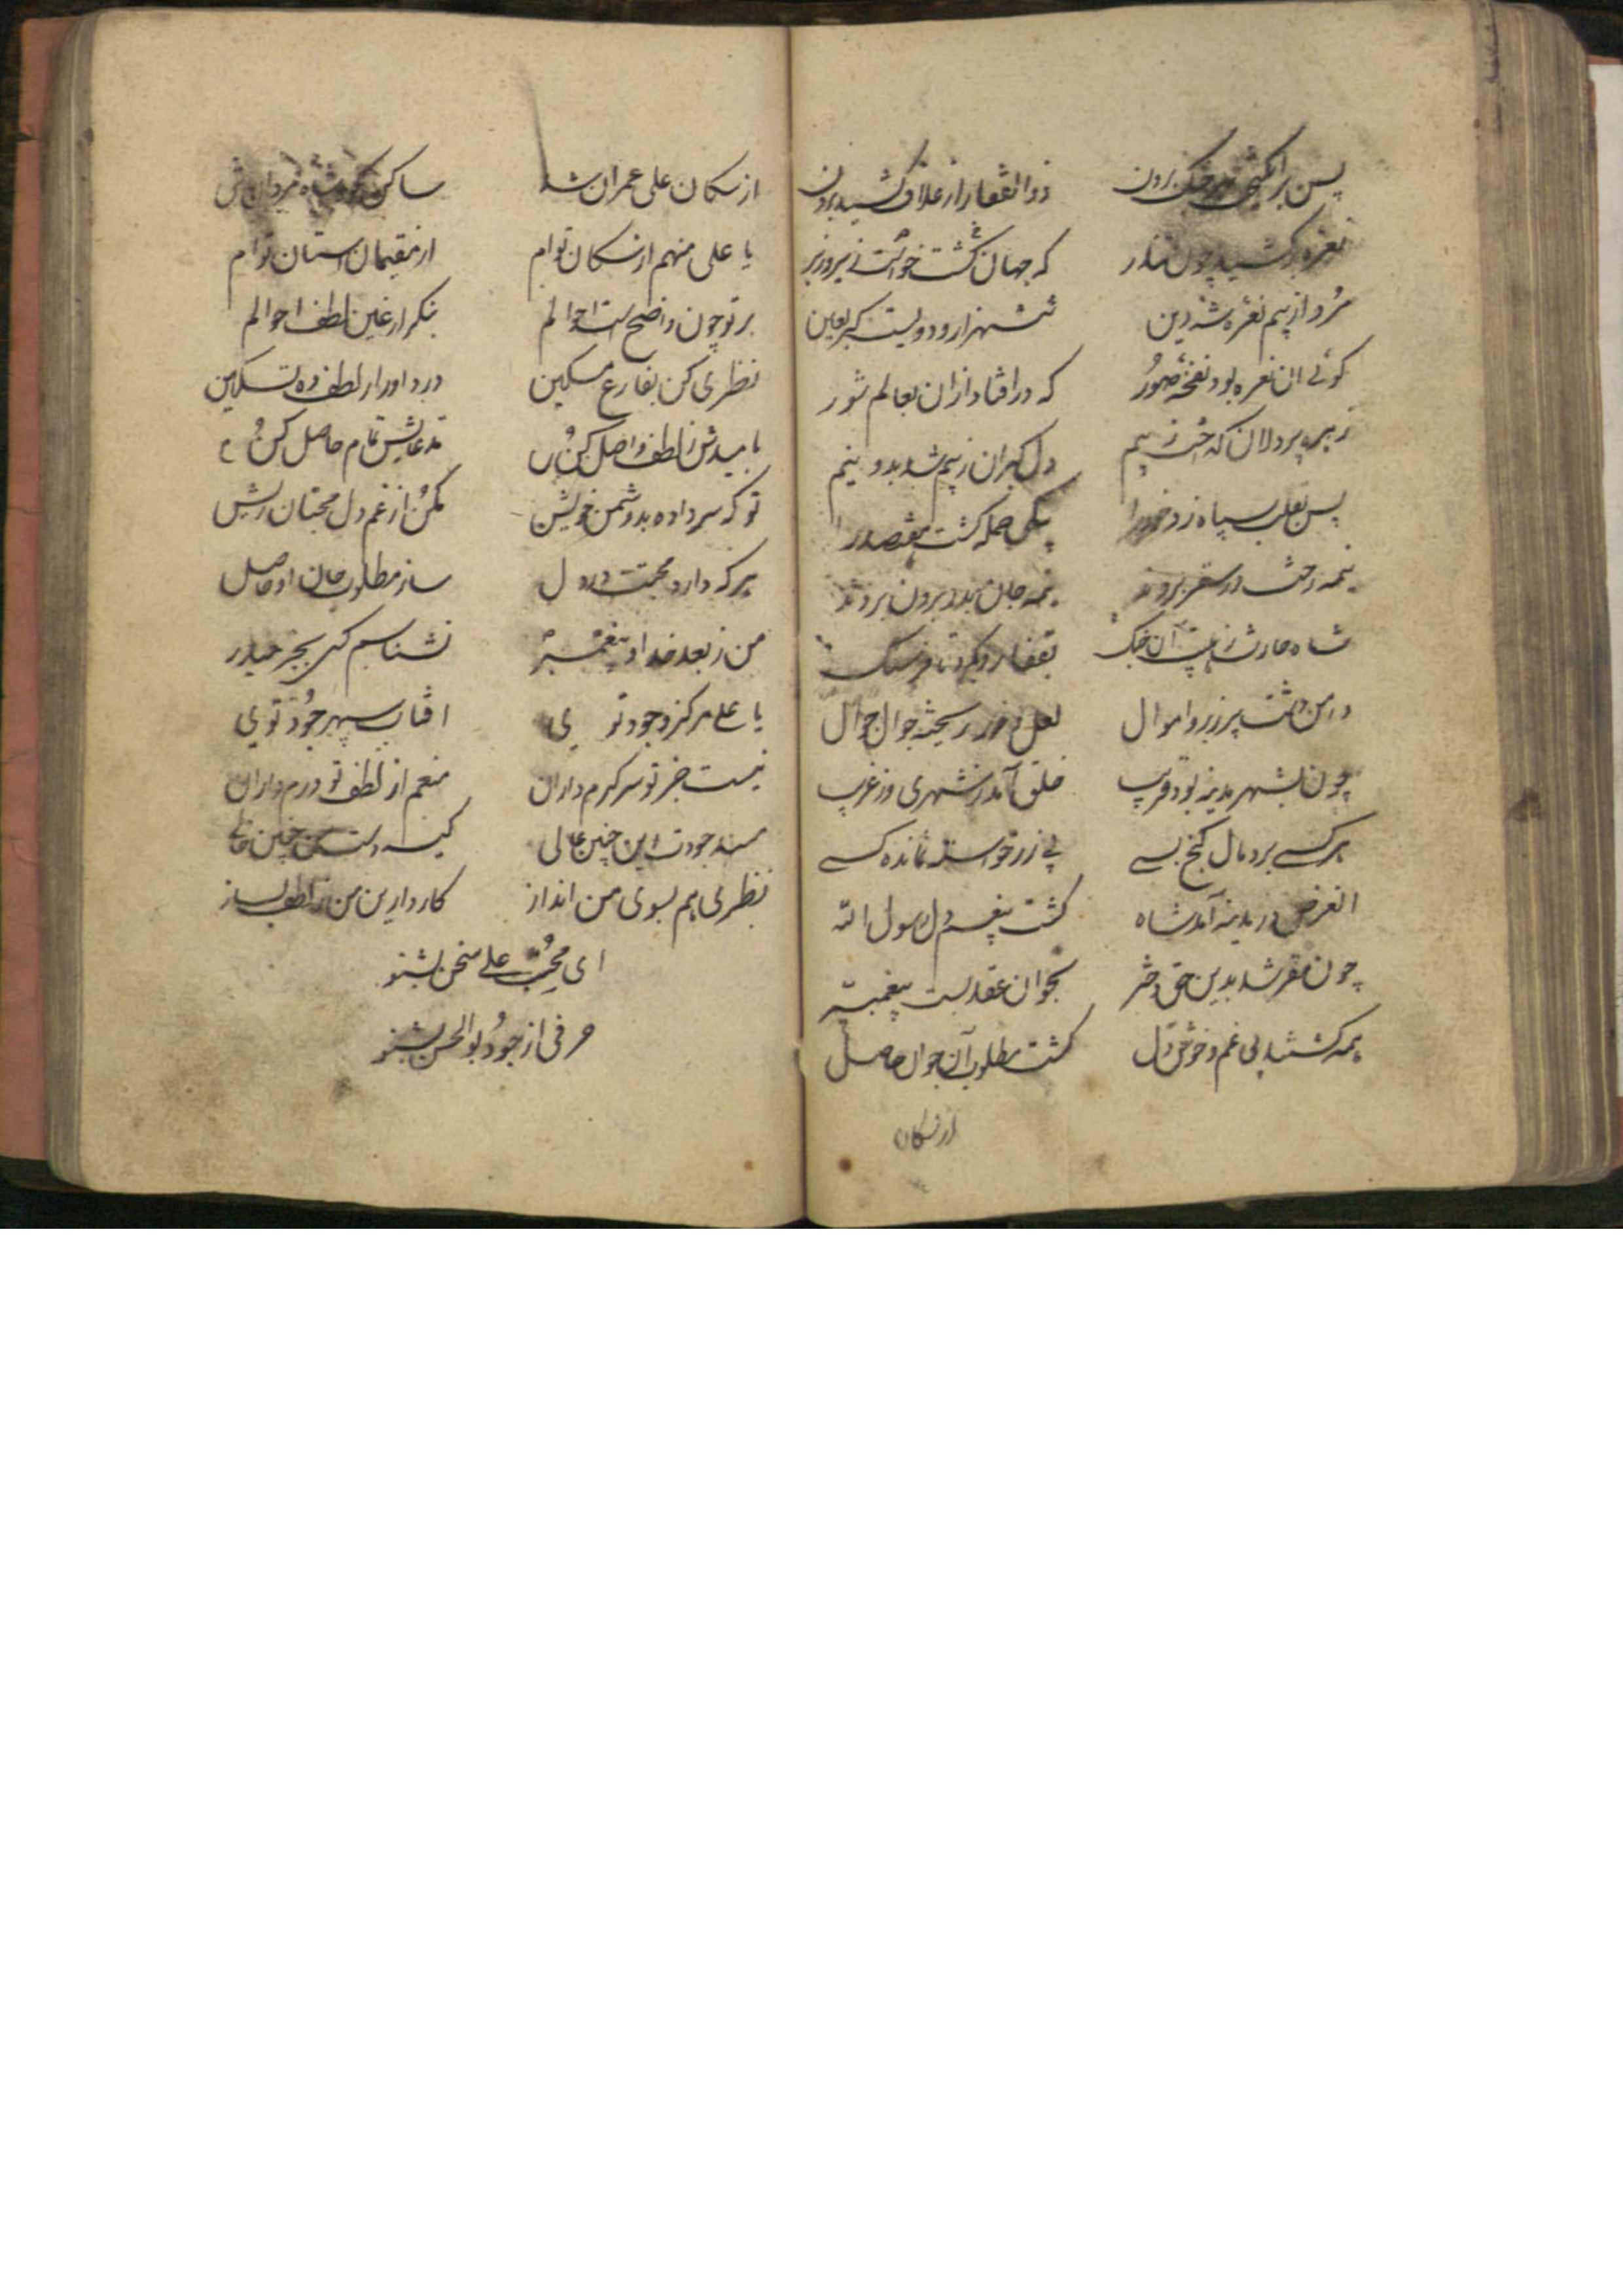 پس برانگیخت جنک بدون ذوالفقار از غلاف کشید برون
نعره برکشید چون تندر که جهان کشت خواست زیر و زبر
مُرد از بیم نعره شه دین ششهزار و دویست کبر لعین
کوئی ان نعره بود نفخه صور که درافتاد ازان بعالم شور
زهره پردلان که خست ز بیم دل کبران ز بیم شد بدو نیم
پس بقلب سپاه زد خود را بیکی حمله کشت هفتصد را
همه رخت در سقر بردند نیمه جان بدر برون بردند
شاه حارث ز هیبت آن جنک بقفا رو کرد تا فرسنک
دامن دشت پر زر و اموال لعل و زر ریخته جوال جوال
چون بشهر مدینه بود قریب خلق آمد ز شهری و ز غریب
هر کسی برد مال کنج بسی بی زر و خواسته نمانده کسی
الغرض در مدینه آمد شاه کشت بیغم دل رسول الله
چون مقر شد بدین حق دختر بجوان عقد بست پیغمبر
همه کشتند بی غم و خوش دل کشت مطلوب آن جوان حاصل
از سکان
از سکان علی عمران شد ساکن کوی شاه مردان شد
یا علی منهم از سکان توام از مقیمان استان توام
بر تو چون واضح است احوالم بنکر از عین لطف احوالم
نظری کن بفارغ مسکین درد او را ز لطف ده تسکین
بامیدش ز لطف واصل کن مدعایش تمام حاصل کن
تو که سر داده بدشمن خویش مکن از غم دل محبتان ریش
هر که دارد محبتت در دل ساز مطلوب جان او حاصل
من ز بعد خدا و پیغمبر نشناسم کسی بجز حیدر
یا علی مرکز وجود توی افتاب سپهر جود توی
نیست جز تو سر کرم داران منعم از لطف تو درم داران
مسند جودت این چنین عالی کیسه دست من چنین خالی
نظری هم بسوی من انداز کار دارین من ز لطف بساز
ای محب علی سخن بشنو
حرفی از جود بوالحسن بشنو